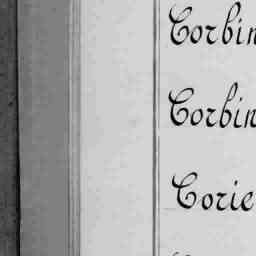 Corbin
Corbin
Corie